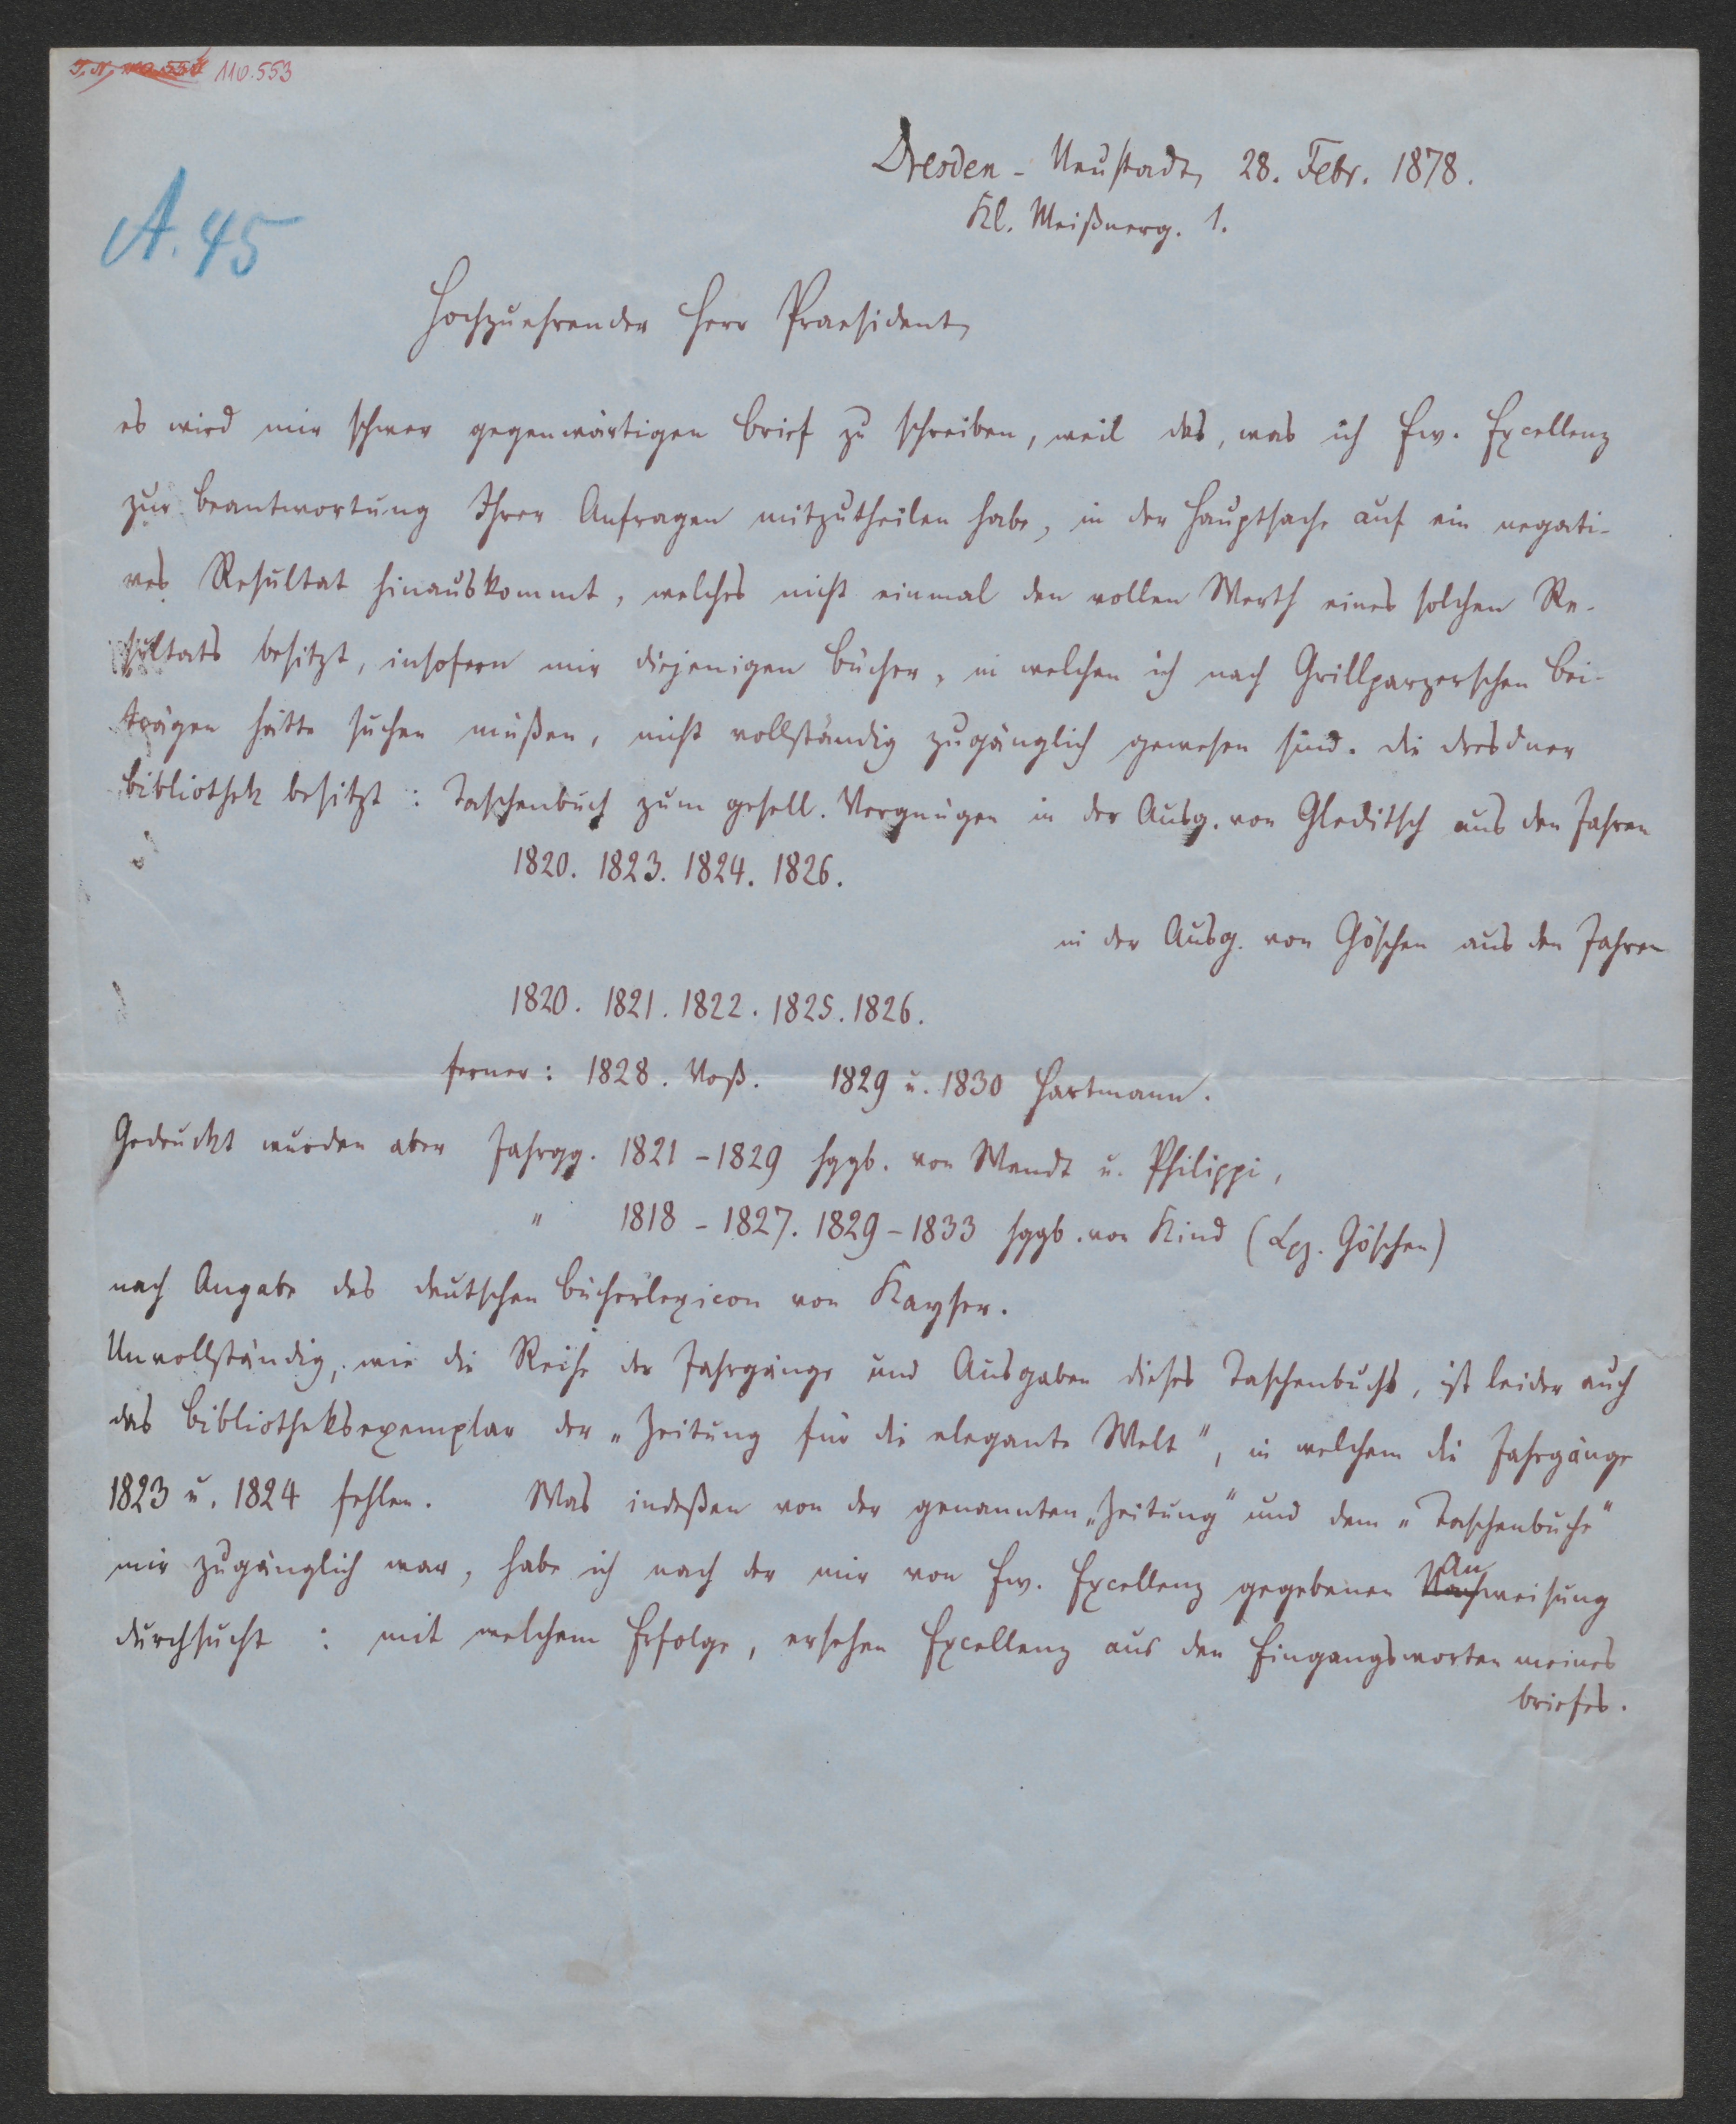 110.553
A. 45
Dresden - Neustadt, 28. Febr. 1878.
Kl. Meißnerg. 1.
Hochzuehrender Herr Praesident,
es wird mir schwer gegenwärtigen Brief zu schreiben, weil das, was ich Ew. Excellenz
zur Beantwortung Ihrer Anfragen mitzutheilen habe, in der Hauptsache auf ein negati-
ves Resultat hinauskommt, welches nicht einmal den vollen Werth eines solchen Re-
sultats besitzt, insofern mir diejenigen Bücher, in welchen ich nach Grillparzerschen Bei-
trägen hätte suchen müßen, nicht vollständig zugänglich gewesen sind. Die Dresdner
Bibliothek besitzt: Taschenbuch zum gesell. Vergnügen in der Ausg. von Gleditsch aus den Jahren
1820. 1823. 1824. 1826.
in der Ausg. von Göschen aus den Jahren
1820. 1821. 1822. 1825. 1826.
ferner: 1828. Voß. 1829 u. 1830 Hartmann.
Gedruckt wurden aber Jahrgg. 1821 - 1829 hggb. von Wendt u. Philippi,
" 1818 - 1827. 1829 - 1833 hggb. von Kind (Lpz. Göschen)
nach Angabe des deutschen Bücherlexicon von Kayser.
Unvollständig, wie die Reihe der Jahrgänge und Ausgaben dieses Taschenbuchs, ist leider auch
das Bibliotheksexemplar der „Zeitung für die elegante Welt", in welchem die Jahrgänge
1823 u. 1824 fehlen. Was indeßen von der genannten „Zeitung" und dem „Taschenbuche"
mir zugänglich war, habe ich nach der mir von Ew. Excellenz gegebenen Anweisung
durchsucht: mit welchem Erfolge, ersehen Excellenz aus den Eingangsworten meines
Briefes.